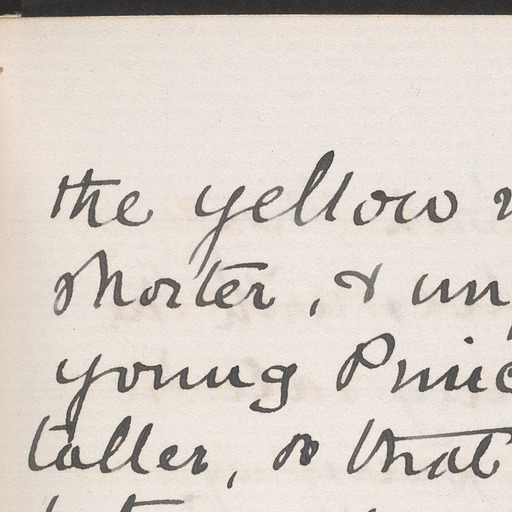 the yellow
shorter, & un
young Princ
taller, so that